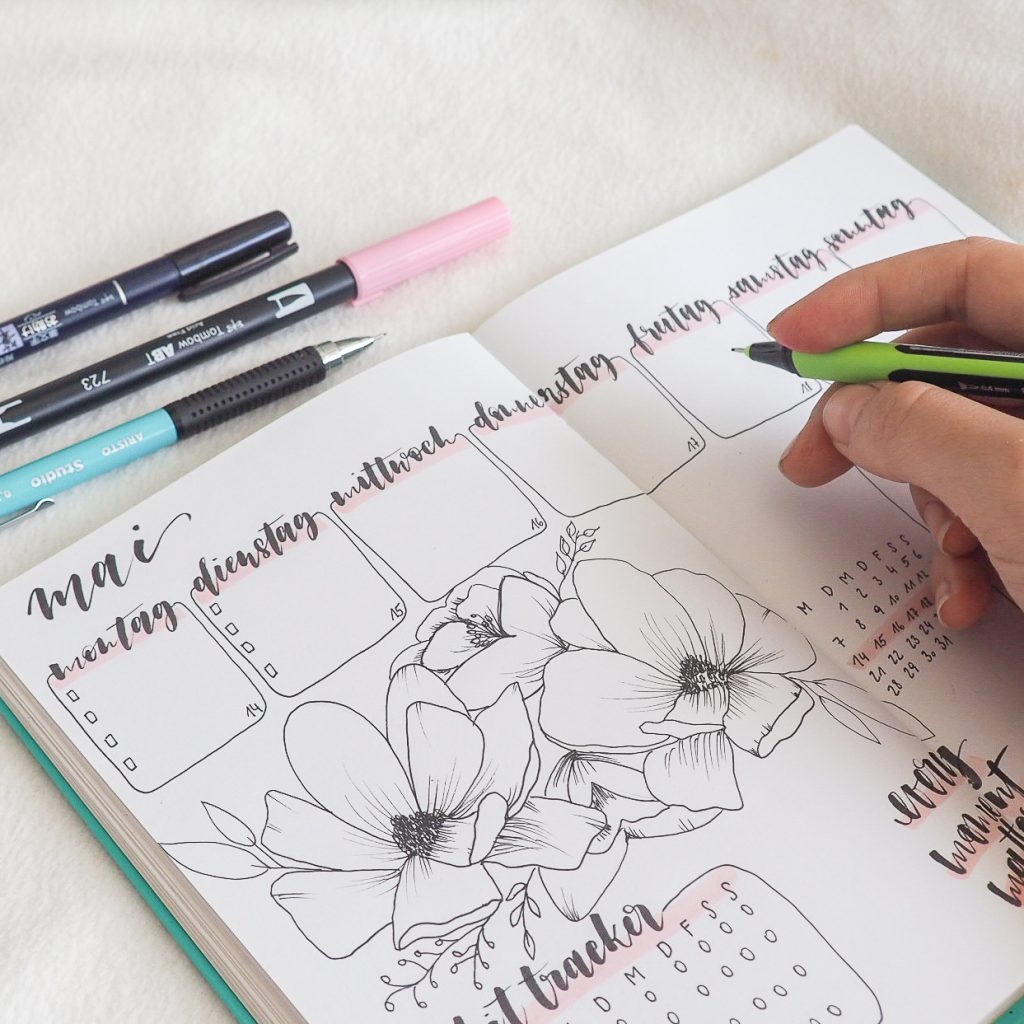 Tombow
Tombow ABT
723
ARISTO Studio
mai
montag
14
dienstag
15
mittwoch
16
donnerstag
17
freitag
18
samstag
sonntag
M D M D F S S
1 2 3 4 5 6
7 8 9 10 11 12
14 15 16 17 18
21 22 23 24
28 29 30 31
every
moment
tracker
D M D F S S